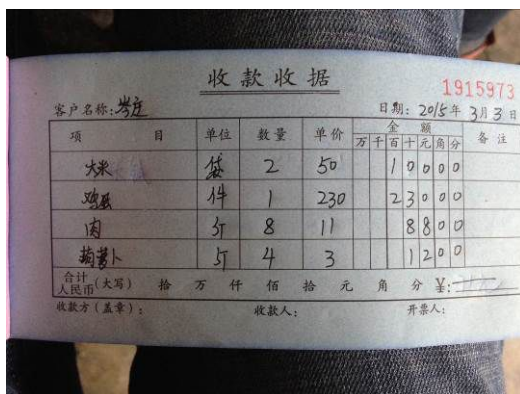 收款收据
1915973
客户名称:岑庄 日期: 2015年 3月 3日
项 目 单位 数量 单价 金 额 备 注
万 千 百 十 元 角 分
大米 袋 2 50 1 0 0 0 0
鸡蛋 件 1 230 2 3 0 0 0
肉 斤 8 11 8 8 0 0
萝卜 斤 4 3 1 2 0 0
合计
人民币(大写) 拾 万 仟 佰 拾 元 角 分 ¥:
收款方(盖章): 收款人: 开票人: